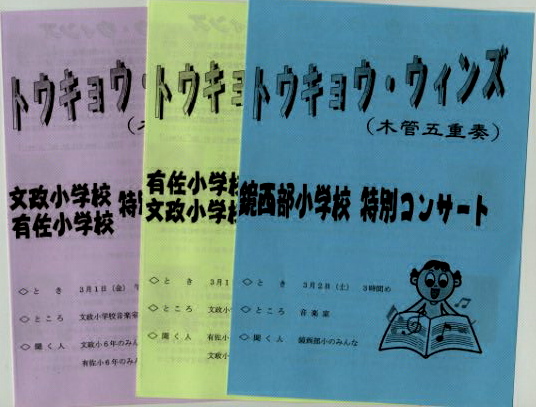 トウキョウ・
文政小学校 特
有佐小学校
◇と き 3月1日(金)
◇ところ 文政小学校音楽室
◇聞く人 文政小6年のみん
有佐小6年のみん
トウキョ
有佐小学校
文政小学校
◇と き 3月1
◇ところ 文政小
◇聞く人 有佐小
文政小
トウキョウ・ウィンズ
(木管五重奏)
鏡西部小学校 特別コンサート
◇と き 3月2日(土) 3時間め
◇ところ 音楽室
◇聞く人 鏡西部小のみんな